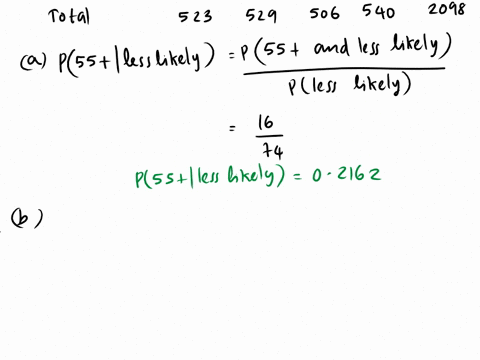 Total 523 529 506 540 2098
(a) P(55+ | less likely) = P(55+ and less likely)
P(less likely)
= 16
74
P(55+ | less likely) = 0.2162
(b)